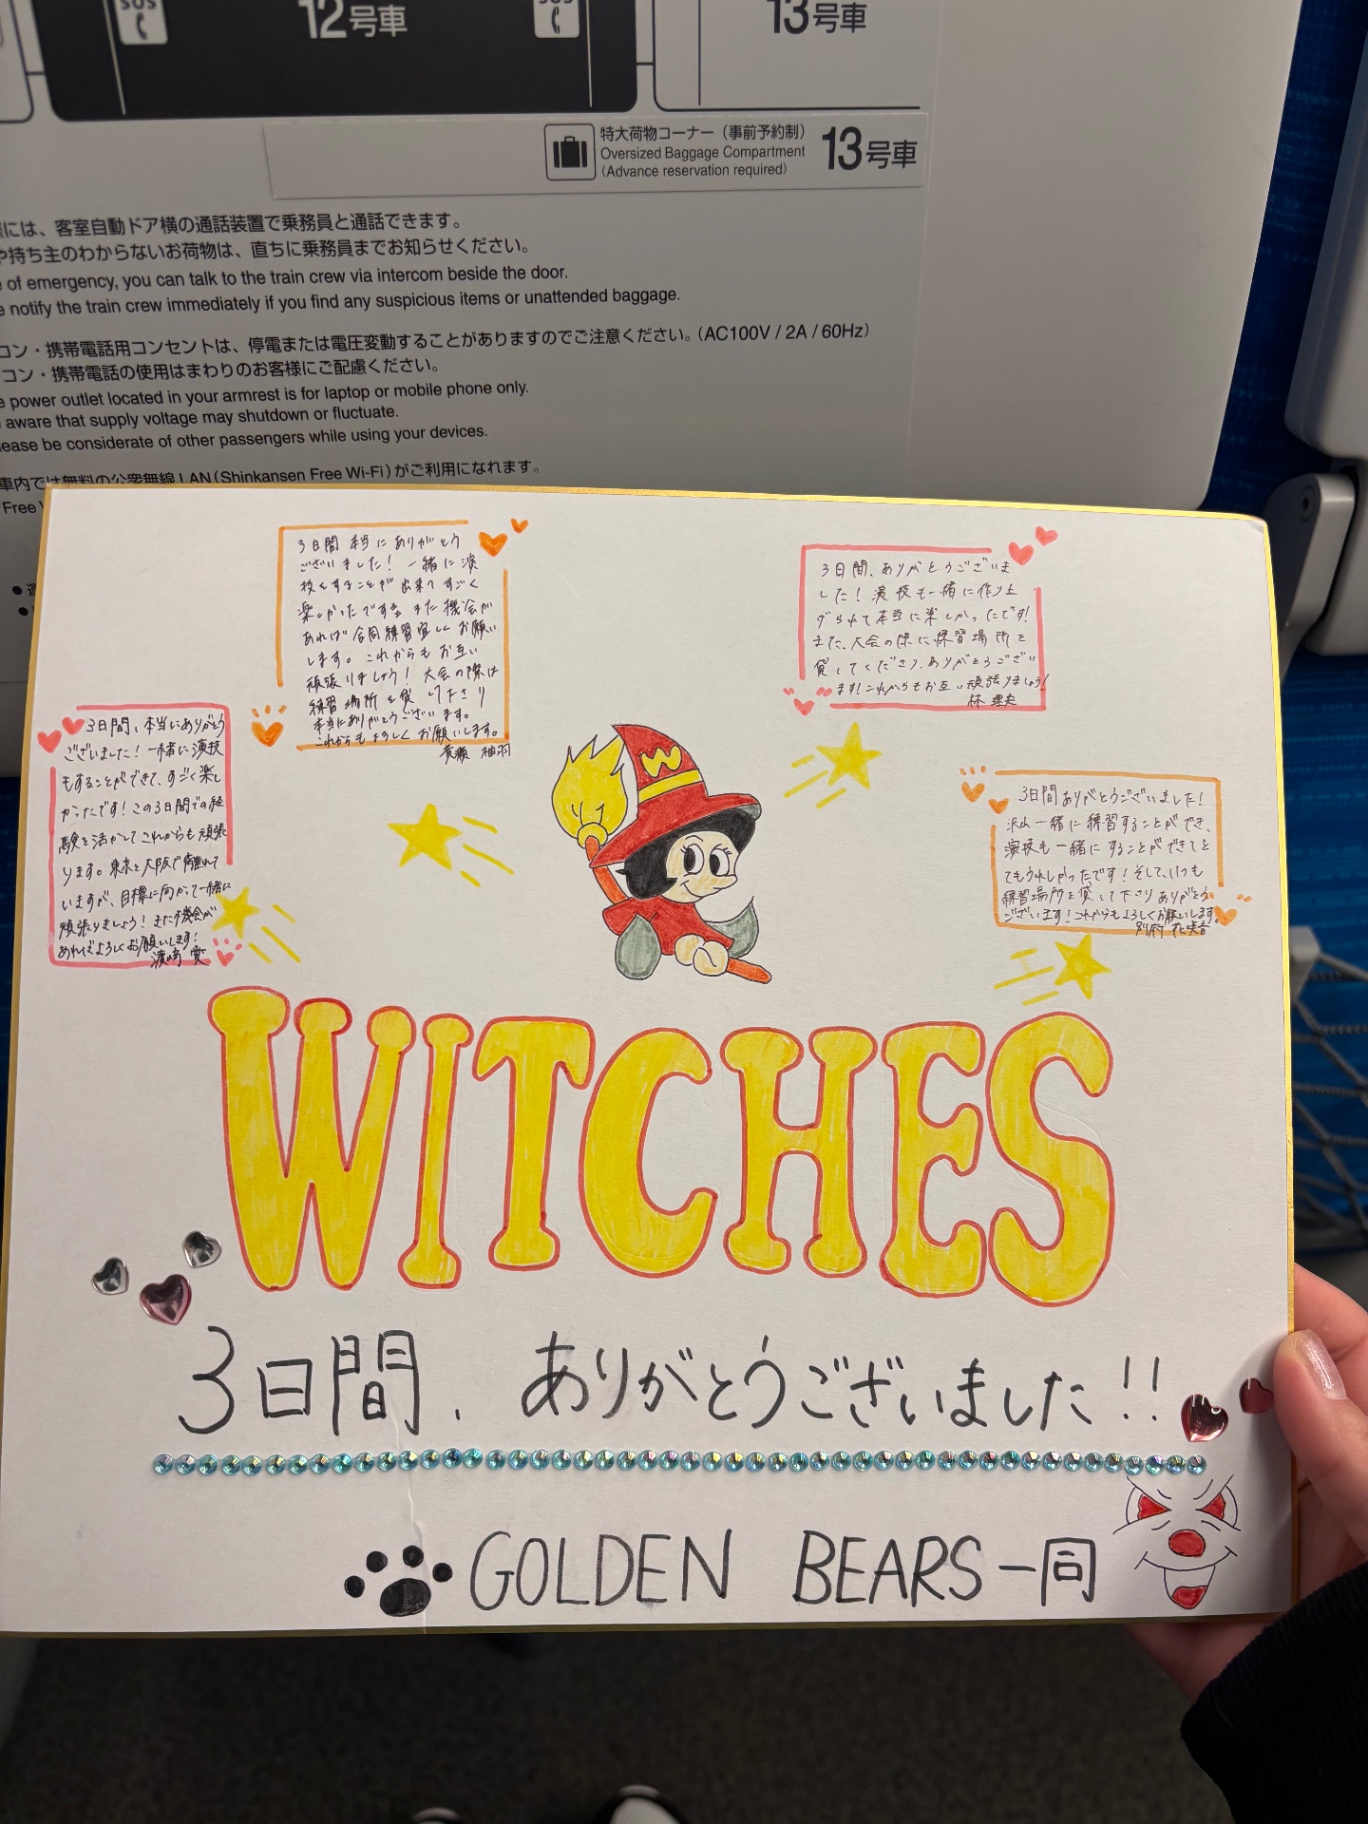 SOS
12号車
SOS
13号車
特大荷物コーナー（事前予約制）
Oversized Baggage Compartment
(Advance reservation required)
13号車
には、客室自動ドア横の通話装置で乗務員と通話できます。
持ち主のわからないお荷物は、直ちに乗務員までお知らせください。
of emergency, you can talk to the train crew via intercom beside the door.
notify the train crew immediately if you find any suspicious items or unattended baggage.
コン・携帯電話用コンセントは、停電または電圧変動することがありますのでご注意ください。（AC100V / 2A / 60Hz）
コン・携帯電話の使用はまわりのお客様にご配慮ください。
power outlet located in your armrest is for laptop or mobile phone only.
aware that supply voltage may shutdown or fluctuate.
lease be considerate of other passengers while using your devices.
車内では無料の公衆無線LAN（Shinkansen Free Wi-Fi）がご利用になれます。
Free
3日間 本当にありがとう
ございました！ 一緒に演
技をすることが出来てすごく
楽しかったです また機会が
あれば合同練習宜しくお願い
します。これからもお互い
頑張りましょう！大会の際は
練習場所を貸して下さり
本当にありがとうございます。
これからもよろしくお願いします。
3日間、ありがとうございま
した！演技も一緒に作り上
げられて本当に楽しかったです！
また、大会の際に練習場所を
貸してくださり、ありがとうござい
ます！これからもお互い頑張りましょう！
林
3日間、本当にありがとう
ございました！一緒に演技
もすることができて、すごく楽し
かったです！この3日間での経
験を活かしてこれからも頑張
ります。東京と大阪で離れて
いますが、目標に向かって一緒に
頑張りましょう！また機会が
あればよろしくお願いします！
濵崎 愛
3日間ありがとうございました！
沢山一緒に練習することができ、
演技も一緒にすることができてと
てもうれしかったです！そして、いつも
練習場所を貸して下さりありがとう
ございます！これからもよろしくお願いします。
別府
W
WITCHES
3日間、ありがとうございました!!
GOLDEN BEARS一同